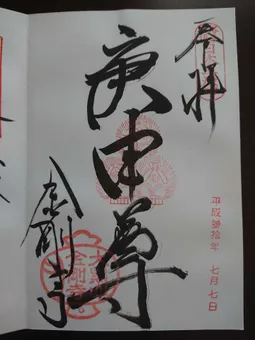 奉拝
庚申尊
金剛寺
平成弐拾年 七月七日